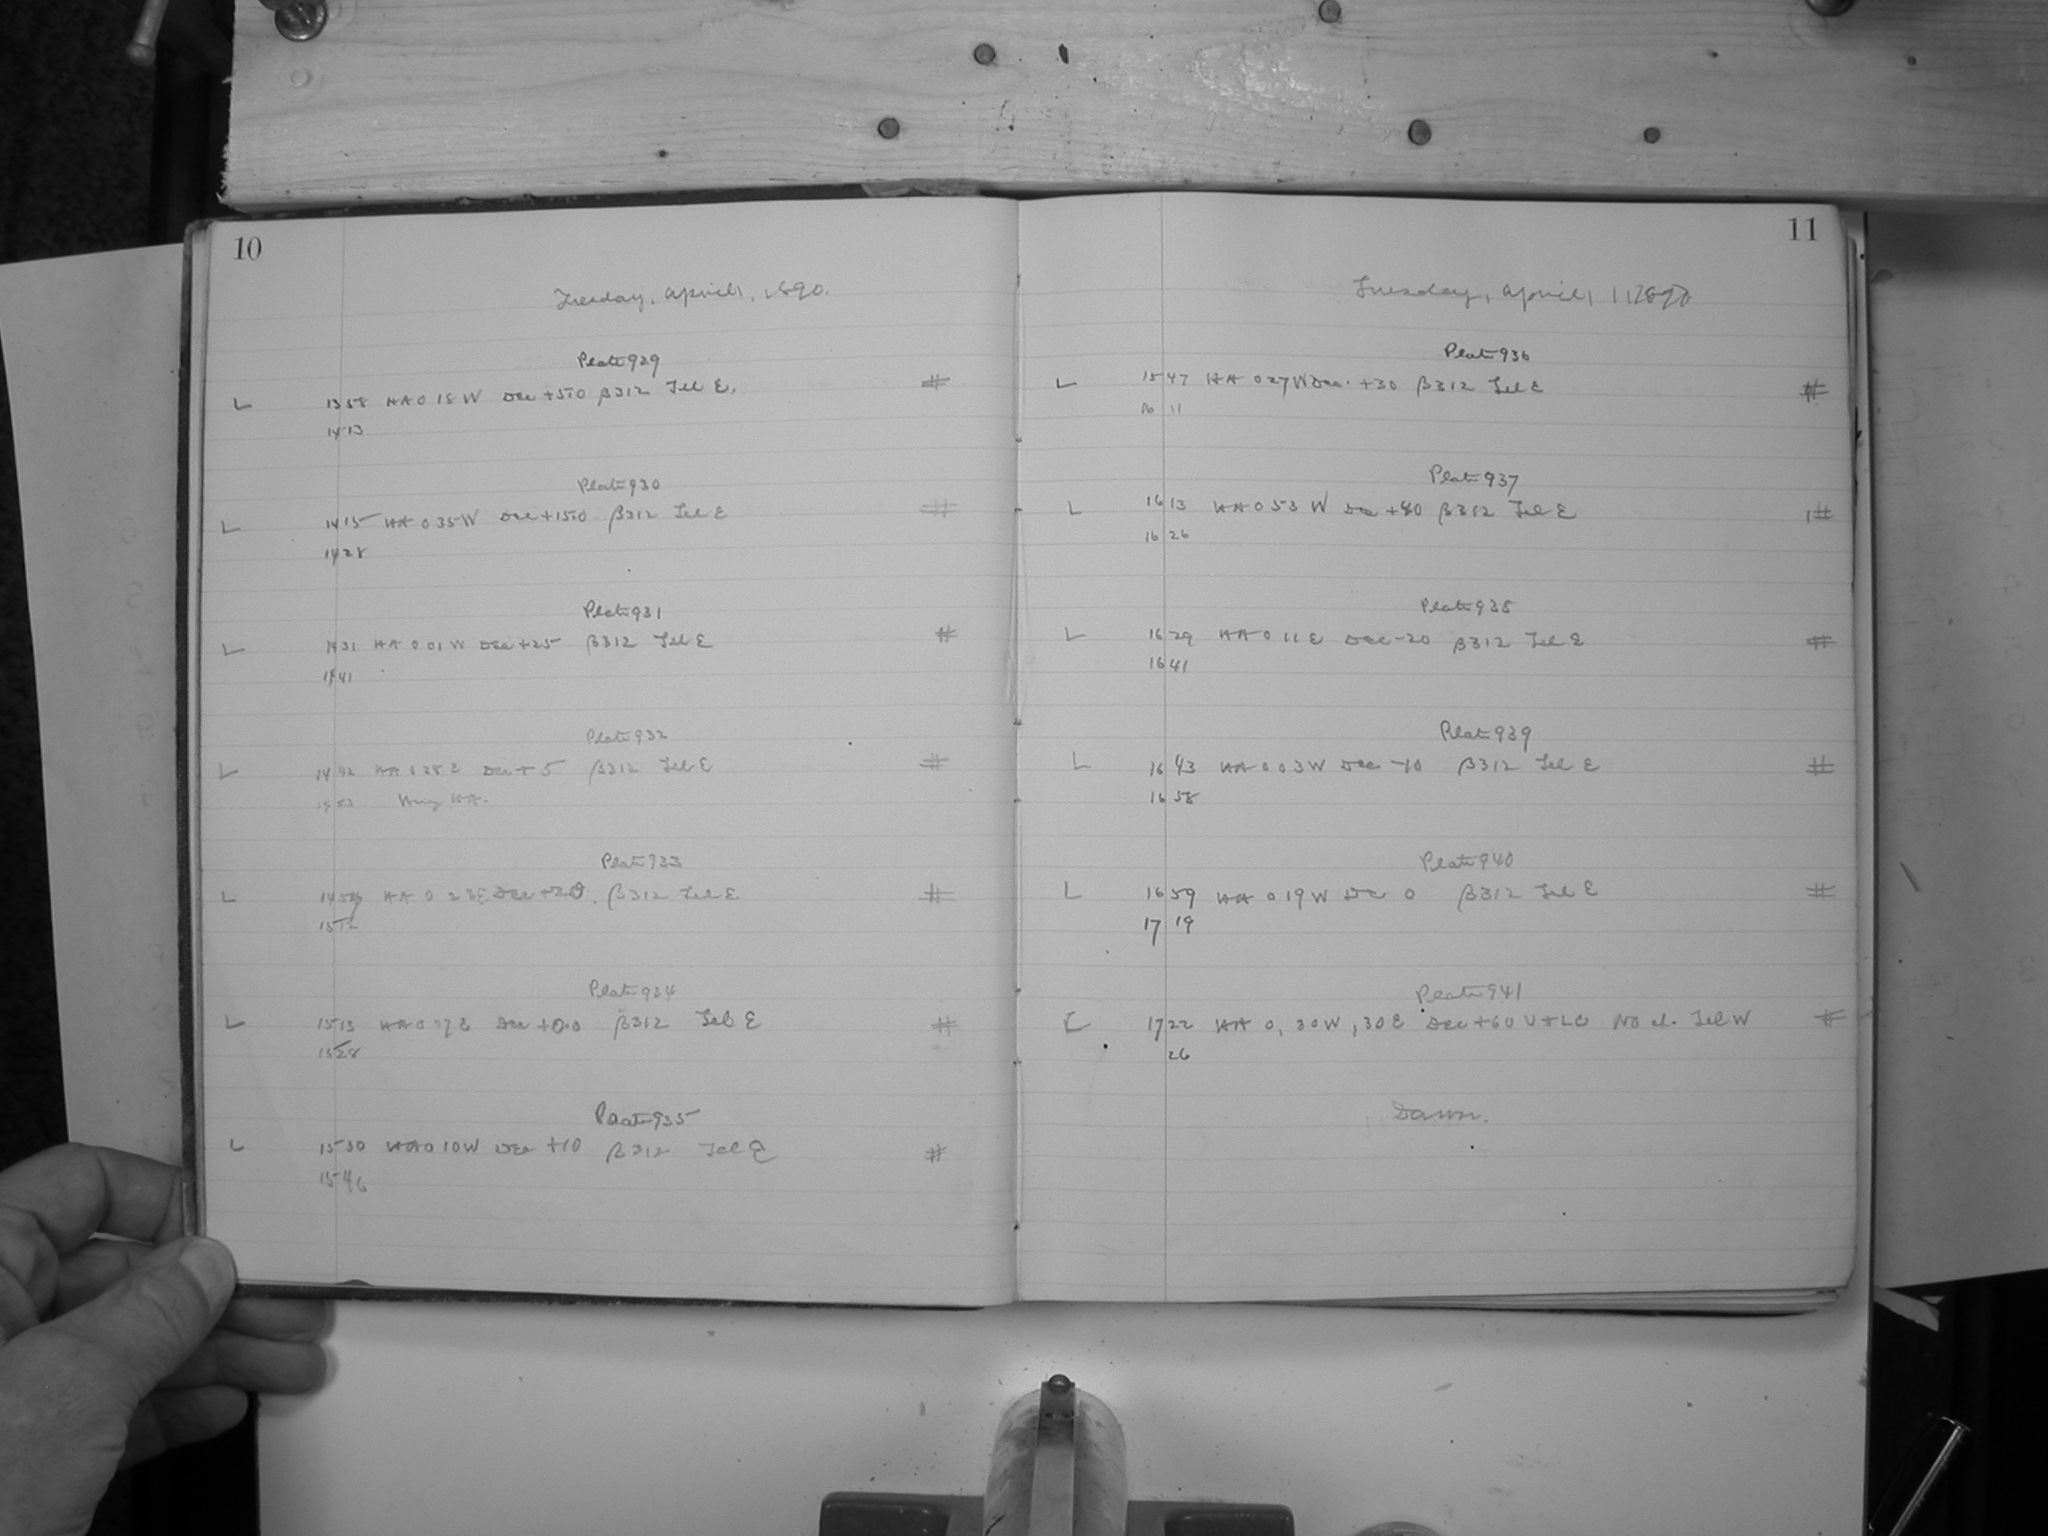 10
Tuesday, April 1, 1890.
Plate 929
L 13 58 HA 0 18 W Dec +50 β312 Tel E. #
14 13
Plate 930
L 14 15 HA 0 35 W Dec +15.0 β312 Tel E #
14 28
Plate 931
L 14 31 HA 0 01 W Dec +25 β312 Tel E #
14 41
Plate 932
L 14 42 HA 0 28 E Dec + 5 β312 Tel E #
14 53 Wrong HA.
Plate 933
L HA 0 23 E Dec β312 Tel E #
15 12
Plate 934
L 15 13 HA 0 07 E Dec β312 Tel E #
15 28
Plate 935
L 15 30 HA 0 10 W Dec +10 β312 Tel E #
15 46
11
Tuesday, April 1, 1890
Plate 936
L 15 47 HA 0 27 W Dec. +30 β312 Tel E #
16 11
Plate 937
L 16 13 HA 0 53 W Dec +40 β312 Tel E #
16 26
Plate 938
L 16 29 HA 0 11 E Dec -20 β312 Tel E #
16 41
Plate 939
L 16 43 HA 0 03 W Dec -10 β312 Tel E #
16 58
Plate 940
L 16 59 HA 0 19 W Dec 0 β312 Tel E #
17 19
Plate 941
17 22 HA 0, 30 W, 30 E Dec +60 U + LC No cl. Tel W #
26
Dawn.